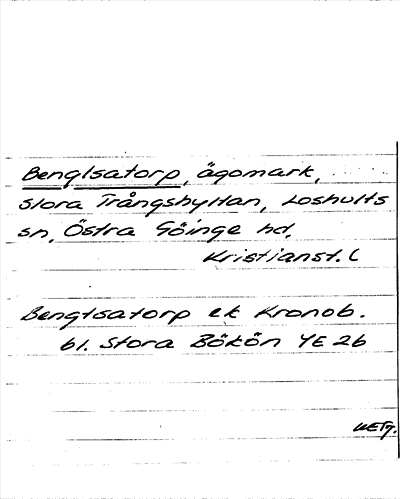 Bengtsatorp, ägomark,
Stora Trångshyttan, Loshults
sn, Östra Göinge hd,
Kristianst. L
Bengtsatorp ek Kronob.
bl. Stora Bökön 4E 26